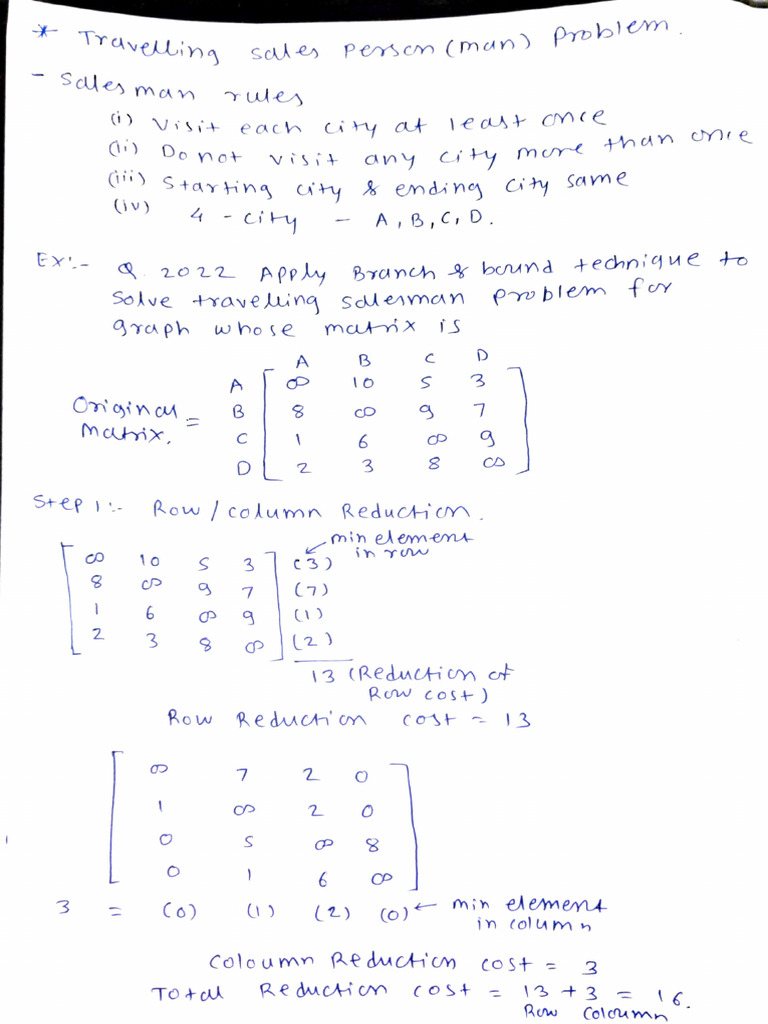 * Travelling sales person (man) Problem.
- Salesman rules
(i) Visit each city at least once
(ii) Do not visit any city more than once
(iii) Starting city & ending city same
(iv) 4 - city - A, B, C, D.
Ex:- Q. 2022 Apply Branch & bound technique to
solve travelling salesman problem for
graph whose matrix is
A B C D
A ∞ 10 5 3
Original = B 8 ∞ 9 7
Matrix. C 1 6 ∞ 9
D 2 3 8 ∞
Step 1:- Row / column Reduction.
min element
in row
∞ 10 5 3 (3)
8 ∞ 9 7 (7)
1 6 ∞ 9 (1)
2 3 8 ∞ (2)
13 (Reduction of
Row cost)
Row Reduction cost = 13
∞ 7 2 0
1 ∞ 2 0
0 5 ∞ 8
0 1 6 ∞
3 = (0) (1) (2) (0) ← min element
in column
Coloumn Reduction cost = 3
Total Reduction cost = 13 + 3 = 16.
Row Coloumn